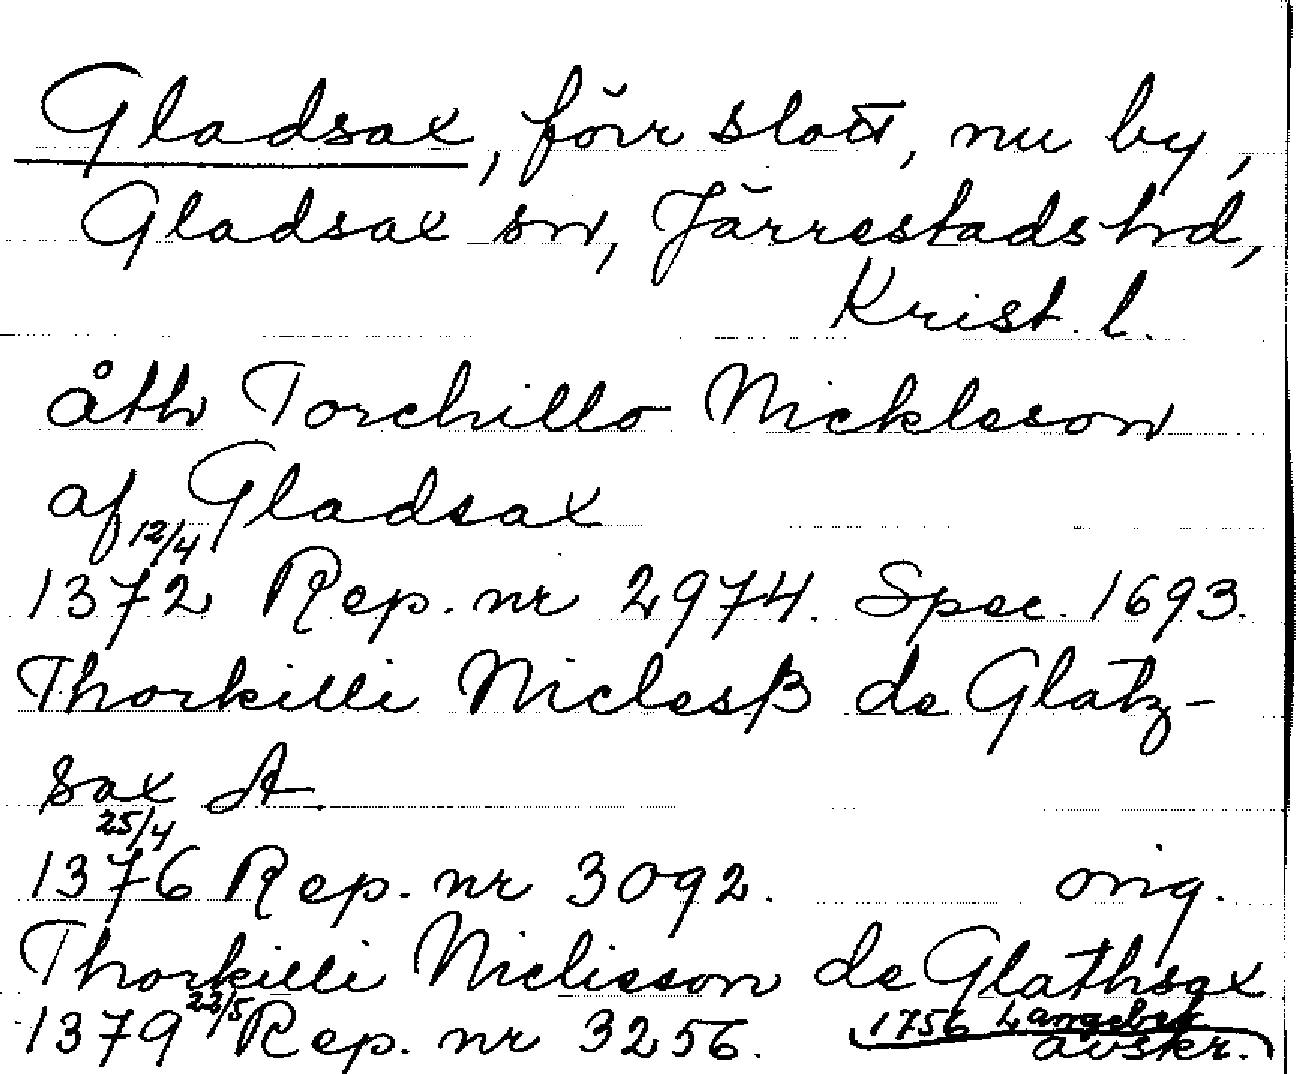 Gladsax, förr slott, nu by,
Gladsax sn, Järrestads hd,
Krist. l.
åth Torchillo Nickleson
af Gladsax
12/4
1372 Rep. nr 2974. Spec. 1693.
Thorkilli Niclesß de Glatz-
sax A.
25/4
1376 Rep. nr 3092. orig.
Thorkilli Niclisson de Glathsax
1379 22/5 Rep. nr 3256. 1756 Langebek
avskr.